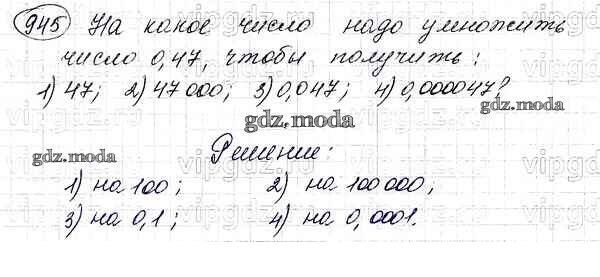 945 На какое число надо умножить
число 0,47, чтобы получить:
1) 47; 2) 47 000; 3) 0,047; 4) 0,000047?
gdz.moda
Решение:
gdz.moda
gdz.moda
1) на 100; 2) на 100 000,
3) на 0,1; 4) на 0,0001.